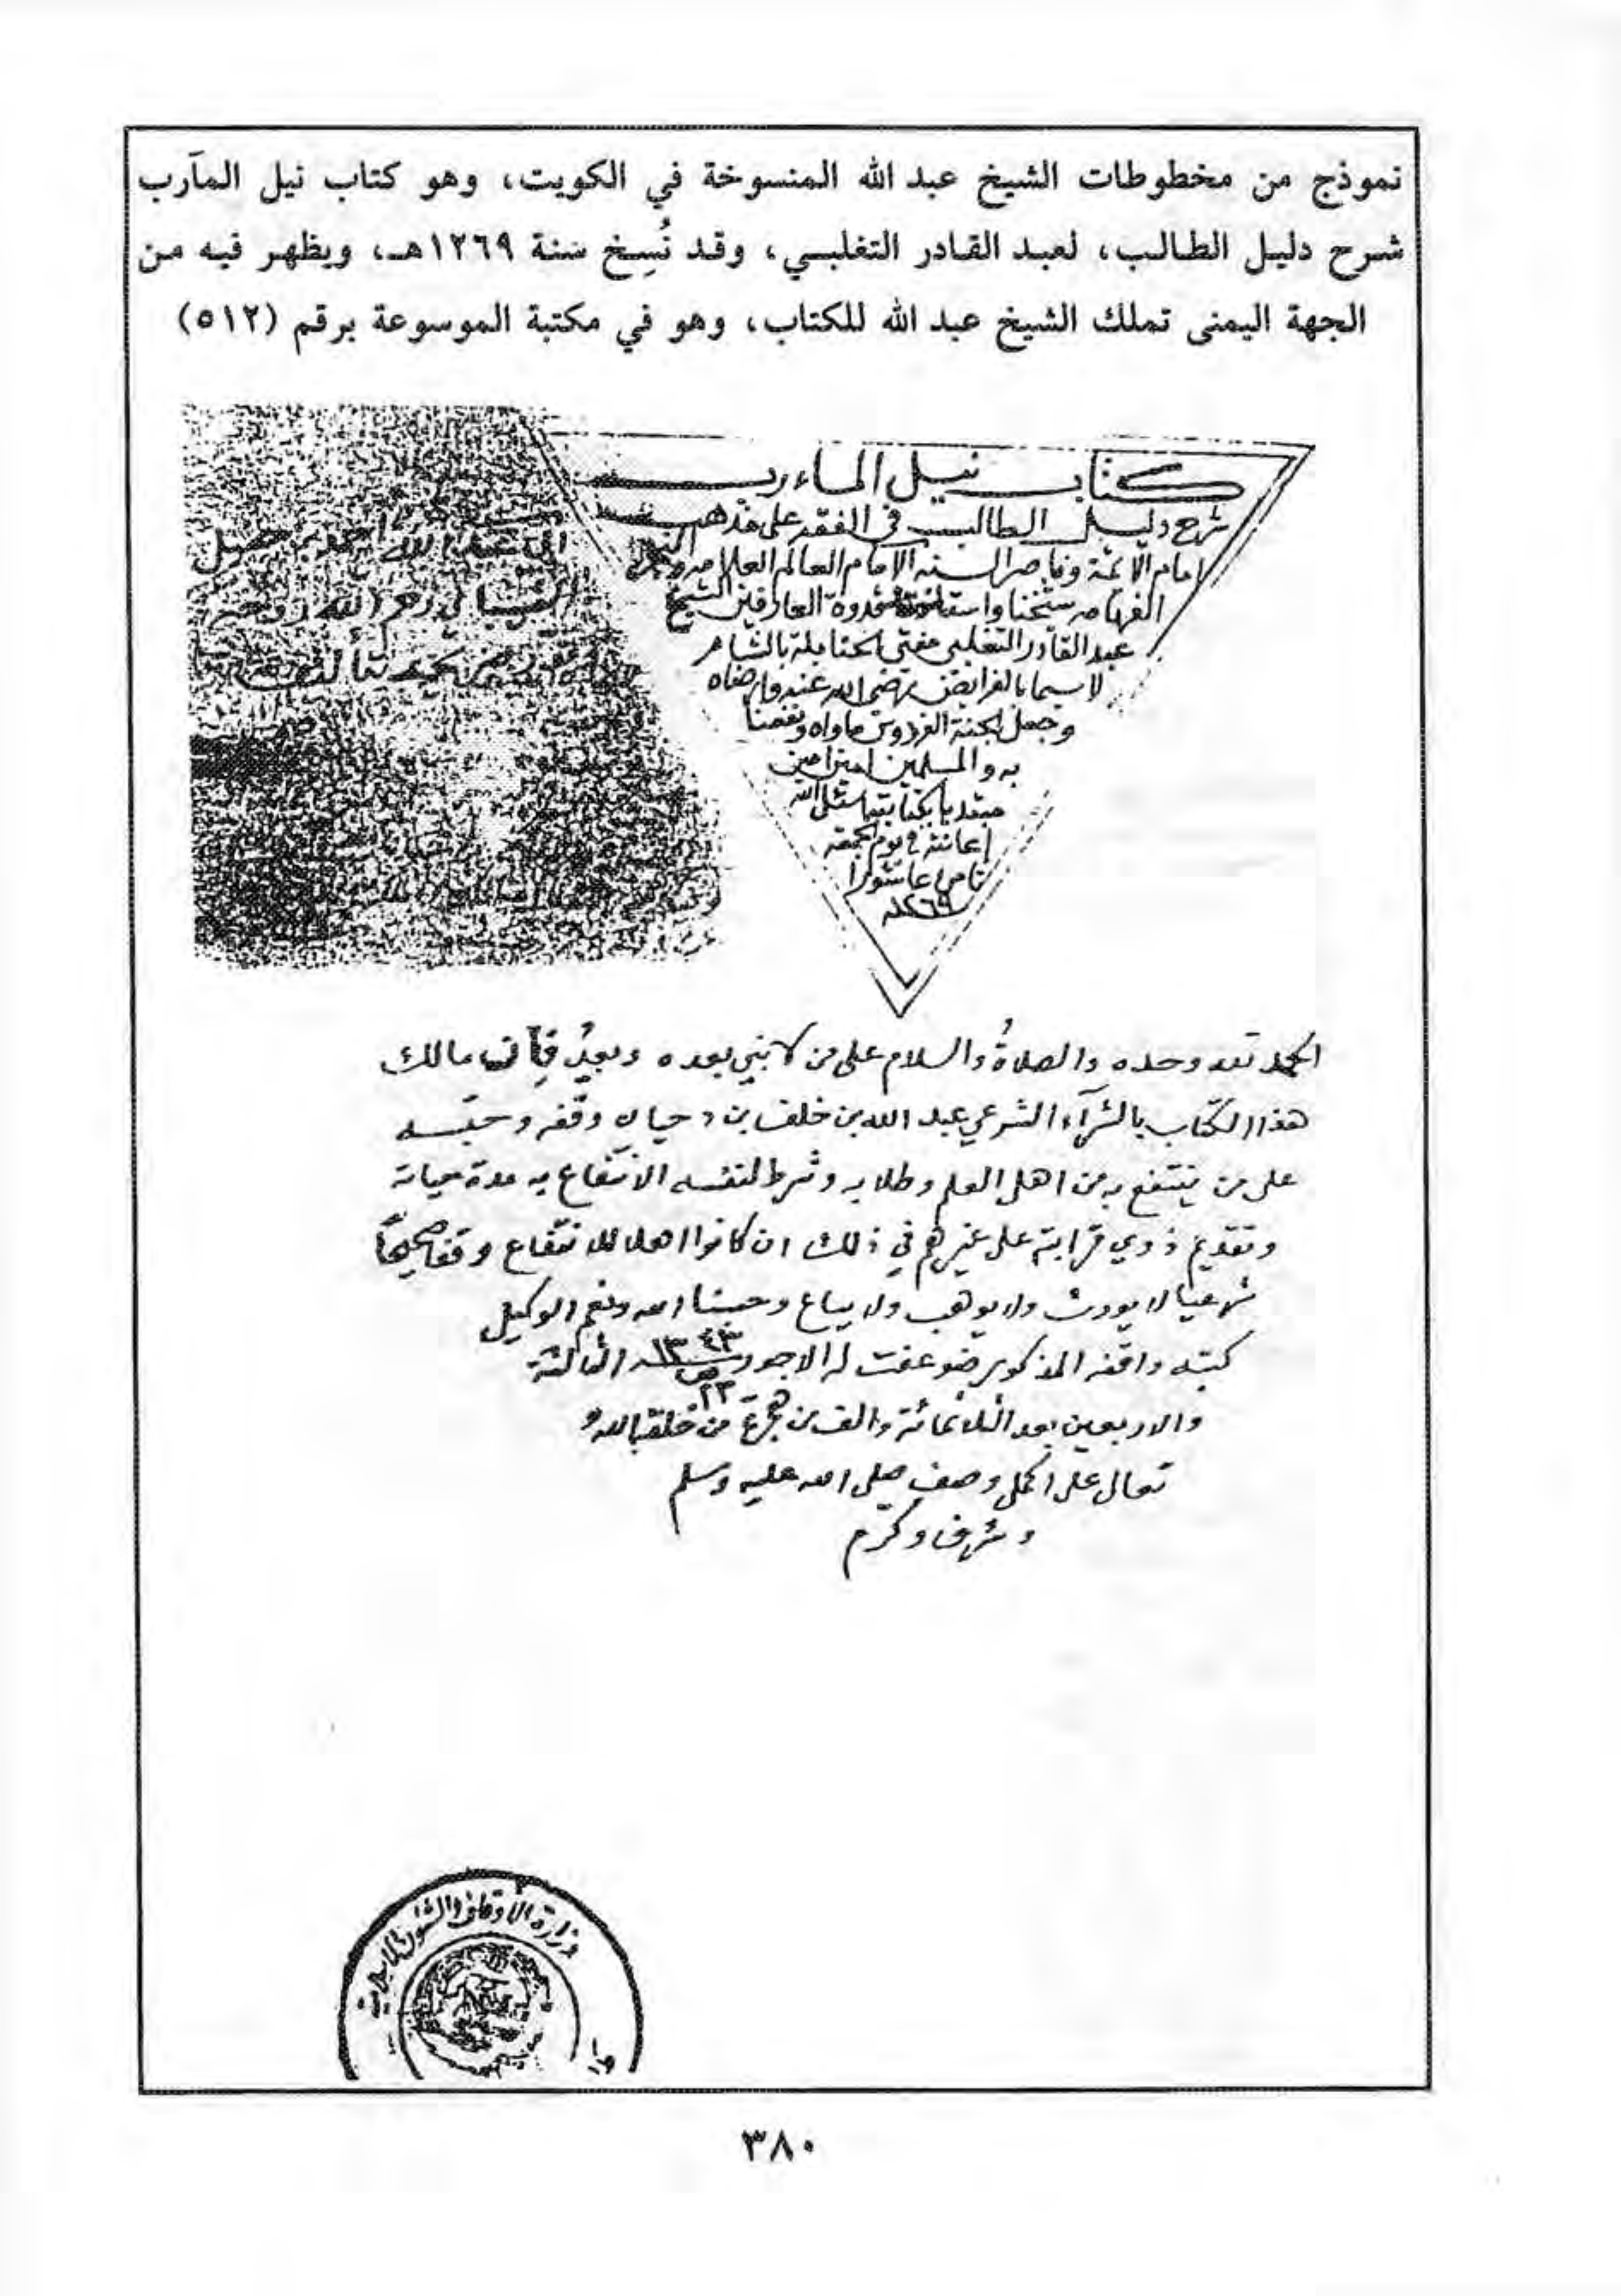 نموذج من مخطوطات الشيخ عبد الله المنسوخة في الكويت، وهو كتاب نيل المآرب
شرح دليل الطالب، لعبد القادر التغلبي، وقد نُسِخ سنة ١٢٦٩هـ، ويظهر فيه من
الجهة اليمنى تملك الشيخ عبد الله للكتاب، وهو في مكتبة الموسوعة برقم (٥١٢)
كتاب نيل الماءرب
شرح دليل الطالب في الفقه على مذهب
امام الائمة وناصر السنه الامام العالم العلامه
الفهامه شيخنا قدوة العارفين الشيخ
عبد القادر التغلبي مفتي الحنابلة بالشام
لا سيما بالفرايض رضي الله عنه وارضاه
وجعل الجنة الفردوس ماواه ونفعنا
به والمسلمين امين امين
مبتديا بكتابته اسئل الله
إعانته في يوم الجمعه
عاشورا
الحمد لله وحده والصلاةُ والسلام على من لا نبي بعده وبعدُ فإن مالك
هذا الكتاب بالشرآء الشرعي عبد الله بن خلف بن دحيان وقفه وحبّسه
على من ينتفع به من اهل العلم وطلابه وشرط لنفسه الانتفاع به مدة حياته
وتقديم ذوي قرابته على غيرهم في ذلك ان كانوا اهلا للانتفاع وقفا صحيحاً
شرعيا لا يورث ولا يوهب ولا يباع وحسبنا الله ونعم الوكيل
كتبه واقفه المذكور ضوعفت له الاجور ٢٣ ص ١٣٤٣ الثالثة
والاربعين بعد الثلاثمائة والف من هجرة من خلقه الله
تعالى على اكمل وصف صلى الله عليه وسلم
وشرف وكرّم
وزارة الأوقاف والشئون الإسلامية
٣٨٠